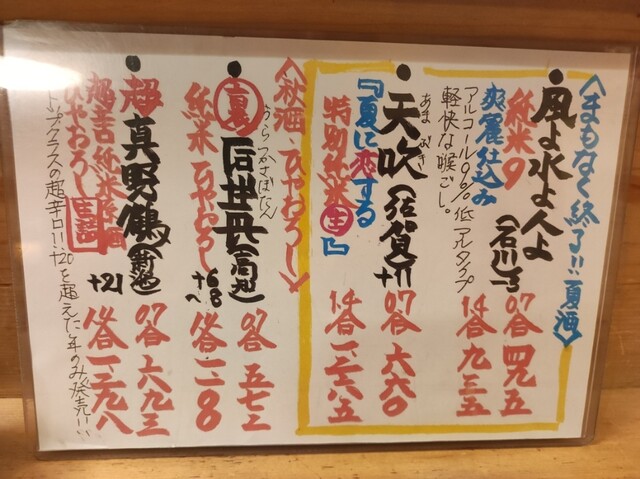 〈まもなく終了!!夏酒〉
風よ水よ人よ
(石川)
純米9
爽麗仕込み
アルコール9%低アルタイプ
軽快な喉ごし。
0.7合 四九五
1.4合 九三五
天吹(佐賀)+11
あまぶき
『夏に恋する
特別純米生』
0.7合 六六〇
1.4合 一二六五
〈秋酒・ひやおろし〉
裏
うらつかさぼたん
(高知)
純米ひやおろし
+6〜8
0.7合 五七二
1.4合 一一〇〇
超 真野鶴(新潟)
+21
超辛口純米生酒
ひやおろし
0.7合 六九三
1.4合 一二九八
トップクラスの超辛口!!+20を超えた年のみ発売!!